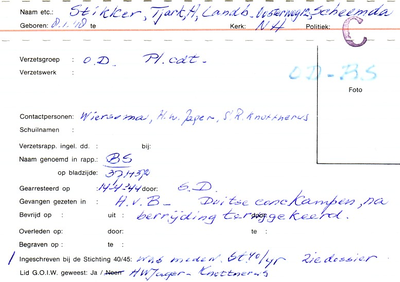 Naam etc.: Stikker, Tjark H, Landb. Scheemda
Geboren: 8.1.18 te Kerk: NH Politiek: C
Verzetsgroep : O.D. Pl. cdt.
Verzetswerk :
OD-BS
Foto
Contactpersonen: Wiersema, H.W. Jager, S.R. Knottnerus
Schuilnamen :
Verzetsrapp. ingel. dd. : bij:
Naam genoemd in rapp.: BS
op bladzijde:
Gearresteerd op : 14-4-44 door: S.D.
Gevangen gezeten in : H.v.B. - Duitse conc Kampen, na
Bevrijd op : uit : door: berrijding teruggekeerd.
Overleden op: door: te:
Begraven op : te :
Ingeschreven bij de Stichting 40/45: was medew. St 40/45 zie dossier
Lid G.O.I.W. geweest: Ja / Neen HW Jager - Knottnerus